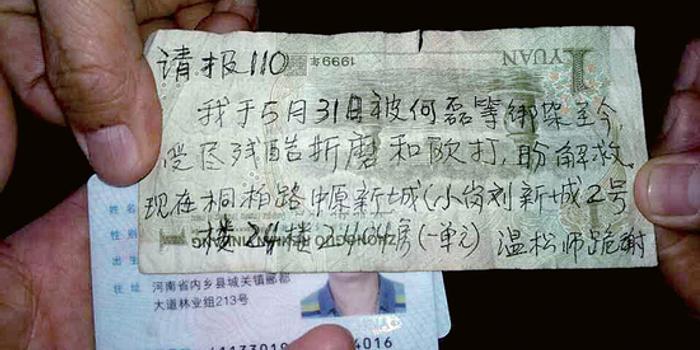 请报110
我于5月31日被何磊等绑架至今,
受尽残酷折磨和欧打,盼解救.
现在桐柏路中原新城(小岗刘新城2号
楼24楼2404房(一单元) 温松师跪谢
1YUAN
1999年
ZHONGGUO RENMIN YINHANG
1
姓名
性别
出生
住址 河南省内乡县城关镇郦都
大道林业组213号
4016